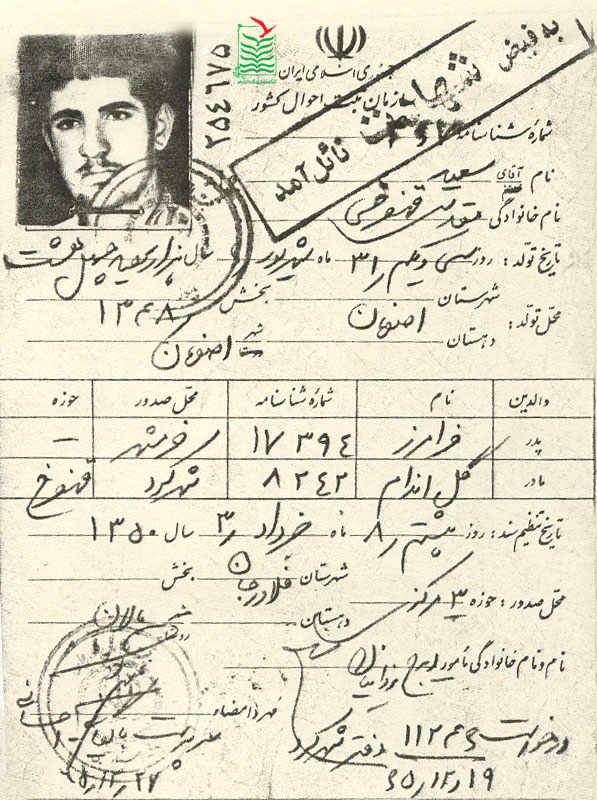 ۲۵۴۶۷۵
جمهوری اسلامی ایران
سازمان ثبت احوال کشور
به فیض شهادت نائل آمد
شمارهٔ شناسنامه
نام آقای سعید
نام خانوادگی
تاریخ تولد: روز سی و یکم ۳۱ ماه شهریور سال هزار و سیصد چهل هشت
۱۳۴۸
محل تولد: شهرستان اصفهان بخش
دهستان شهر اصفهان
والدین نام شمارهٔ شناسنامه محل صدور حوزه
پدر فرامرز ۱۷۳۹۴ خرمشهر –
مادر گل اندام ۸۲۴۲ شهرکرد قهفرخ
تاریخ تنظیم سند: روز هشتم ۸ ماه خرداد ۳ سال ۱۳۵۰
محل صدور: حوزه ۳ مرکز شهرستان فلاورجان بخش
دهستان
نام و نام خانوادگی مأمور ایرج
مهر و امضاء
درخواست ۱۱۲۴۶ دفتر شهرکرد
۶۵,۱۲,۱۹